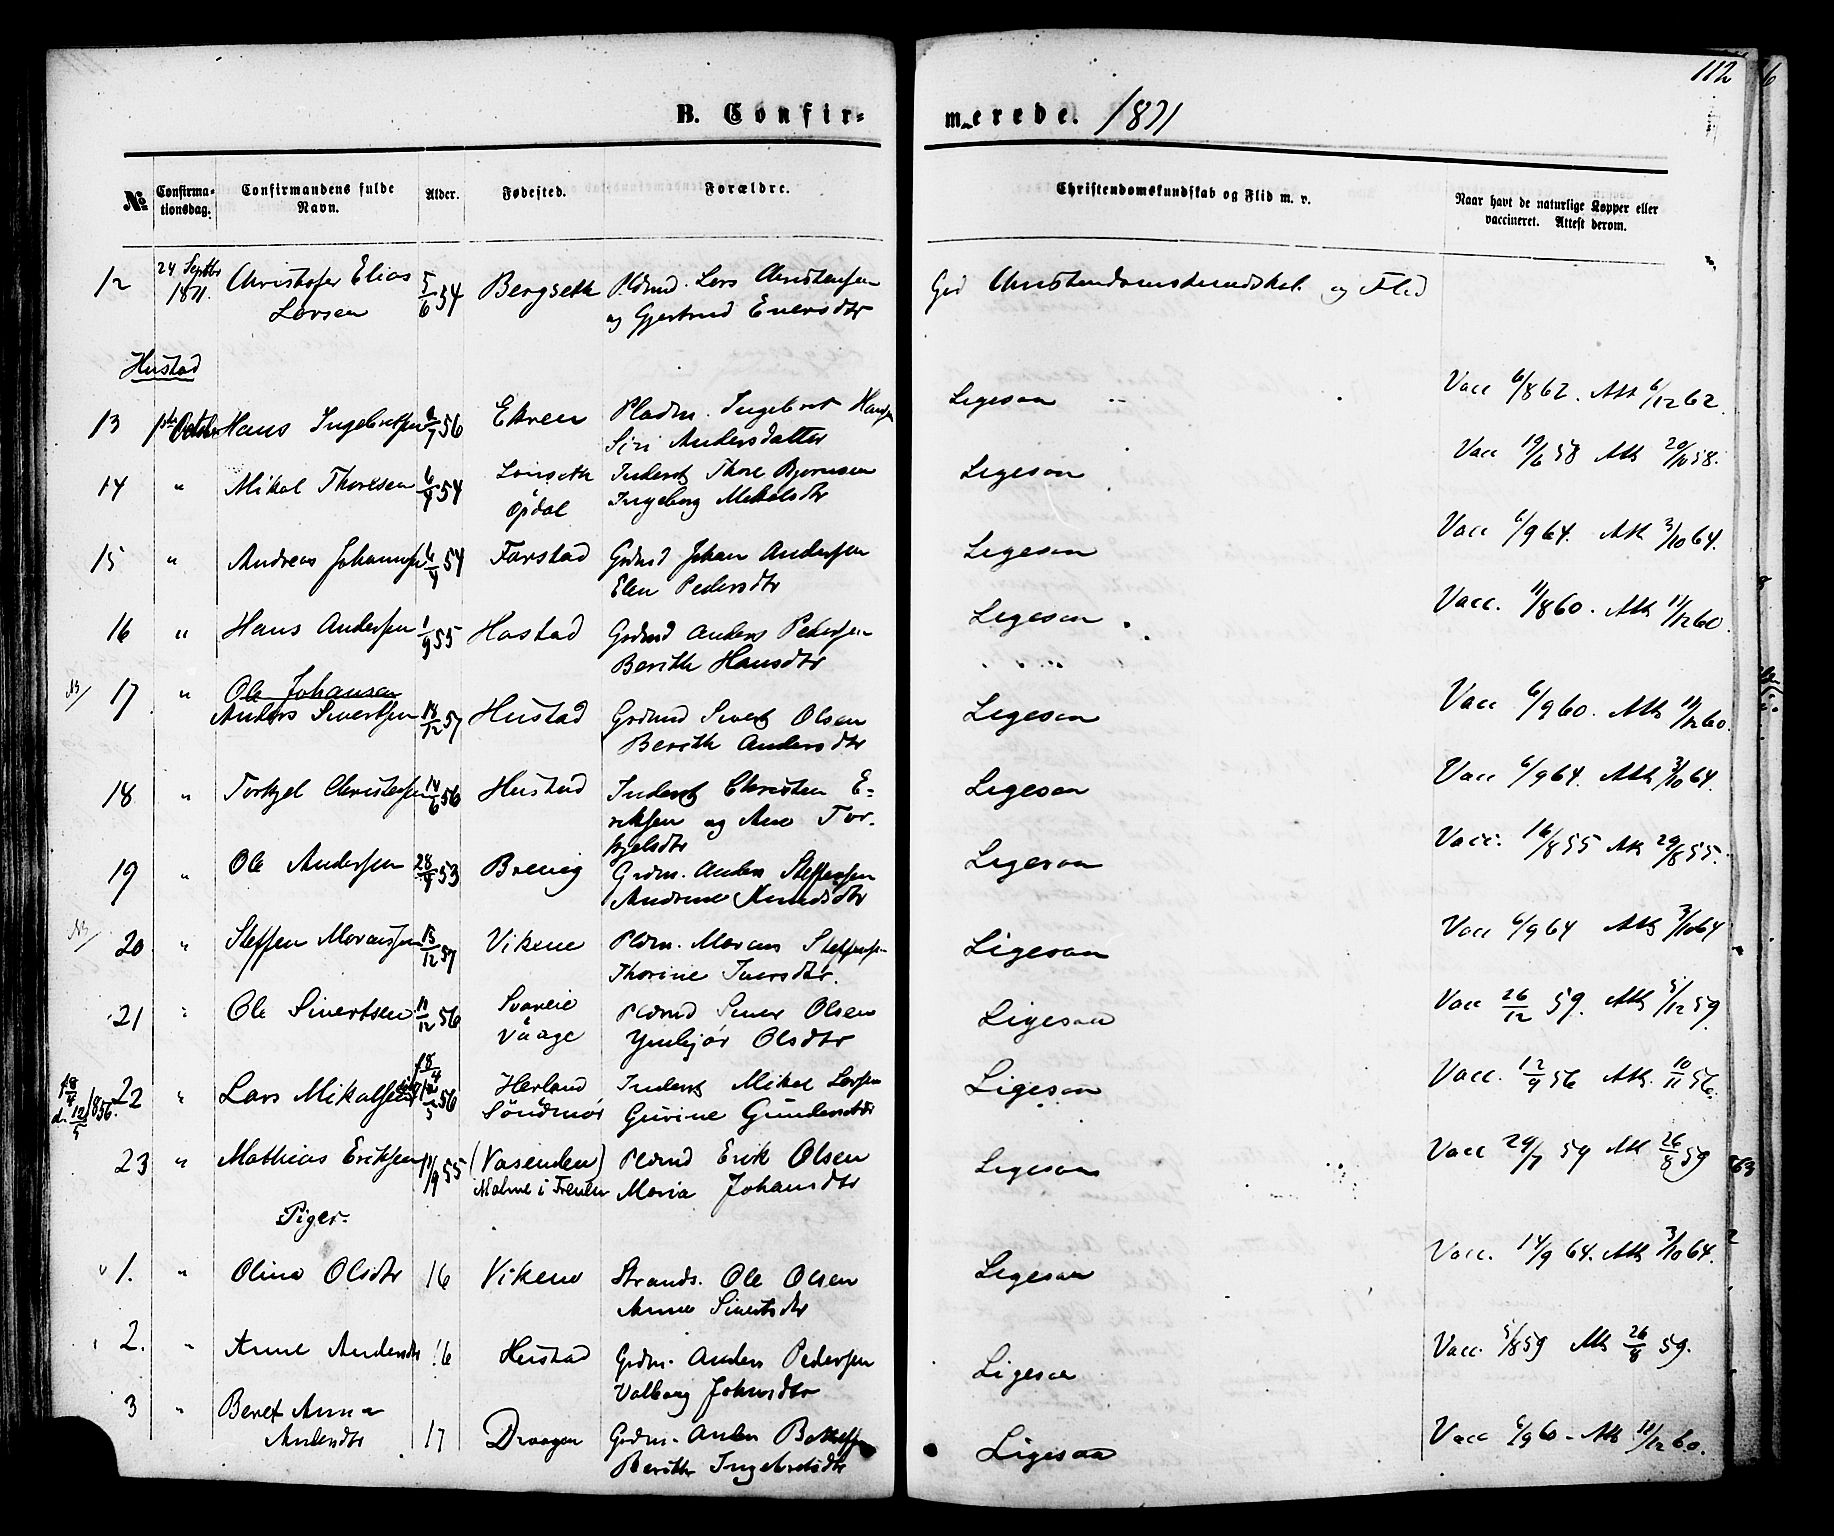 112
B. Confir- merede. 1871
№ Confirma-tionsdag. Confirmandens fulde Navn. Alder. Fødested. Forældre. Christendomskundskab og Flid m. v. Naar havt de naturlige Kopper eller vaccineret. Attest derom.
12 24 Septbr 1871. Christofer Elias Larsen 5/6 54 Bergseth Pldmd. Lars Christensen og Gjertrud Eversdtr God Christendomskundskab og Flid
Hustad
13 1ste Octobr Hans Ingebretsen 56 Ekren Pladm. Ingebret Hansen Siri Andersdatter Ligesaa Vacc 6/8 62. Att 6/12 62.
14 " Mikal Thoresen 54 Opdal Inderst Thore Bjørnsen Ingeborg Mikalsdtr Ligesaa Vacc 19/6 58 Att 58.
15 " Andreas Johansen 54 Farstad Grdmd Johan Andersen Elen Pedersdtr Ligesaa Vacc 6/9 64. Att 3/10 64.
16 " Hans Andersen 1/9 55 Hostad Grdmd Anders Pedersen Berith Hansdtr Ligesaa Vacc. 11/8 60. Att 11/12 60.
NB/ 17 " Ole Johansen
Anders Sivertsen 18/12 57 Hustad Grdmd Sivert Olsen Berith Andersdtr Ligesaa Vacc 6/9 60. Att 11/12 60.
18 " Torkjel Christensen 14/6 56 Hustad Inderst Christen Eriksen og Ane Torkjelsdtr Ligesaa Vacc 6/9 64. Att 3/10 64.
19 " Ole Andersen 53 Brevig Grdm. Anders Steffensen Andrine Knudsdtr Ligesaa Vacc. 16/8 55 Att 29/8 55.
NB/ 20 " Steffen Moransen 13/12 57 Vikene Pldm. Morans Steffensen Thorine Iversdtr. Ligesaa Vacc 6/9 64 Att 3/10 64
21 " Ole Sivertsen 11/12 56 Vaage Pldmd Olsen Olsdtr Ligesaa Vacc 26/12 59. Att 5/12 59.
18/4 d. 12/5 1856. 22 " Lars Mikalsen 18/4 12/5 56 Herland Söndmør Inderst Mikal Larsen Gurine Gundersdtr Ligesaa Vacc. 12/9 56 Att. 10/11 56.
23 " Mathias Eriksen 11/9 55 (Vasenden) Malme i Frenen Pldmd Erik Olsen Maria Johansdtr Ligesaa Vacc 29/7 59 Att 26/8 59
Piger.
1. " Olina Olsdtr 16 Vikene Strands. Ole Olsen Anne Sivertsdtr Ligesaa Vacc. 14/9 64. Att 3/10 64.
2. " Anne Andersdtr 16 Hustad Grdm. Anders Pedersen Valborg Johnsdtr Ligesaa Vacc. 5/8 59 Att 26/8 59.
3 " Beret Anna Andersdtr 17 Draagen Grdm. Anders Bottolfsen Berithe Ingebretsdtr Ligesaa Vacc 6/9 60. Att 11/12 60.